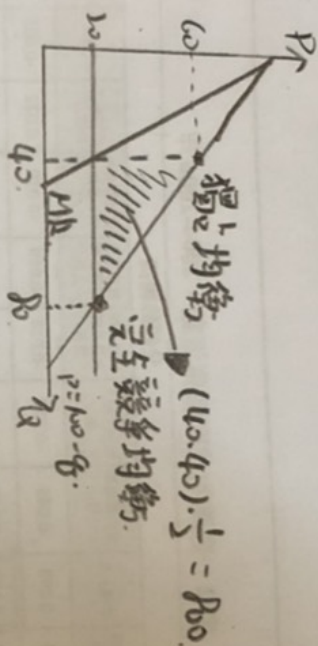 P
60
20
40
80
q
MR
P=100-q.
獨占均衡
完全競爭均衡.
(40.40)·1/2 = 800.